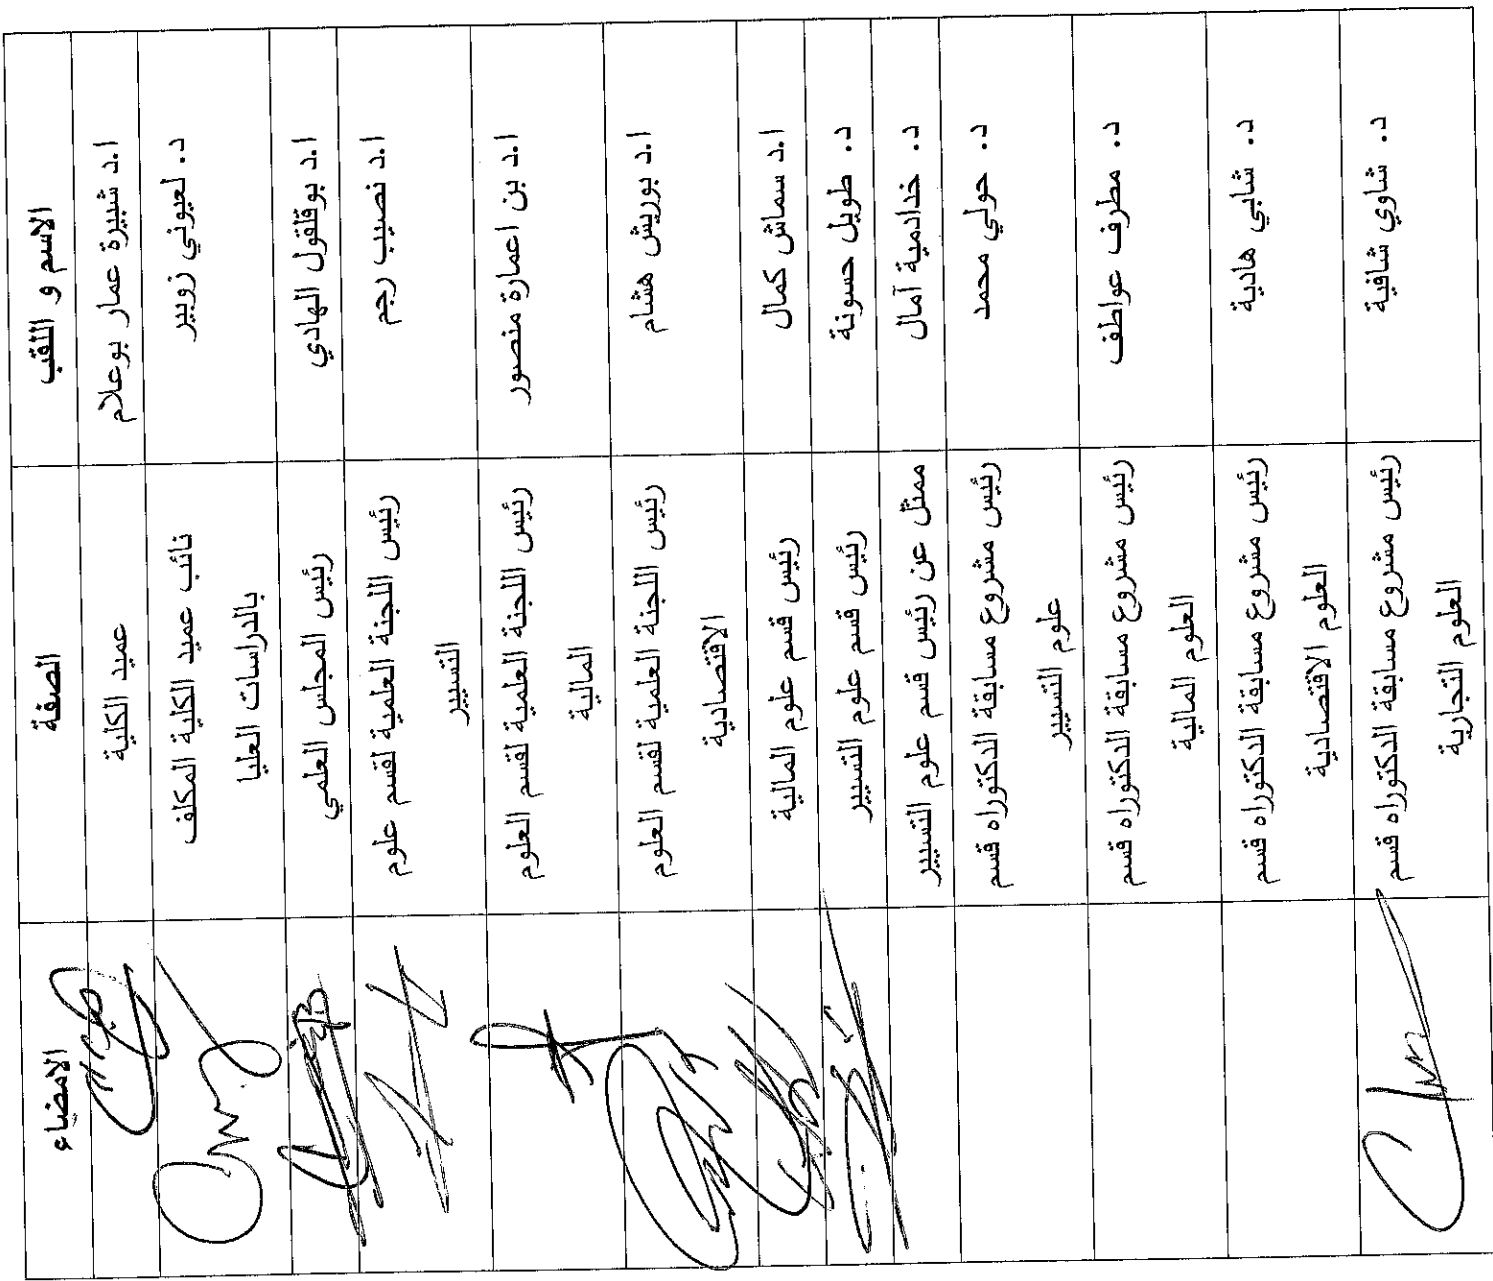 الاسم و اللقب
الصفة
الامضاء
ا.د شبيرة عمار بوعلام
عميد الكلية
د. لعيوني زوبير
نائب عميد الكلية المكلف
بالدراسات العليا
ا.د بوقلقول الهادي
رئيس المجلس العلمي
ا.د نصيب رجم
رئيس اللجنة العلمية لقسم علوم
التسيير
ا.د بن اعمارة منصور
رئيس اللجنة العلمية لقسم العلوم
المالية
ا.د بوريش هشام
رئيس اللجنة العلمية لقسم العلوم
الاقتصادية
ا.د سماش كمال
رئيس قسم علوم المالية
د. طويل حسونة
رئيس قسم علوم التسيير
د. خدادمية آمال
ممثل عن رئيس قسم علوم التسيير
د. حولي محمد
رئيس مشروع مسابقة الدكتوراه قسم
علوم التسيير
د. مطرف عواطف
رئيس مشروع مسابقة الدكتوراه قسم
العلوم المالية
د. شابي هادية
رئيس مشروع مسابقة الدكتوراه قسم
العلوم الاقتصادية
د. شاوي شافية
رئيس مشروع مسابقة الدكتوراه قسم
العلوم التجارية